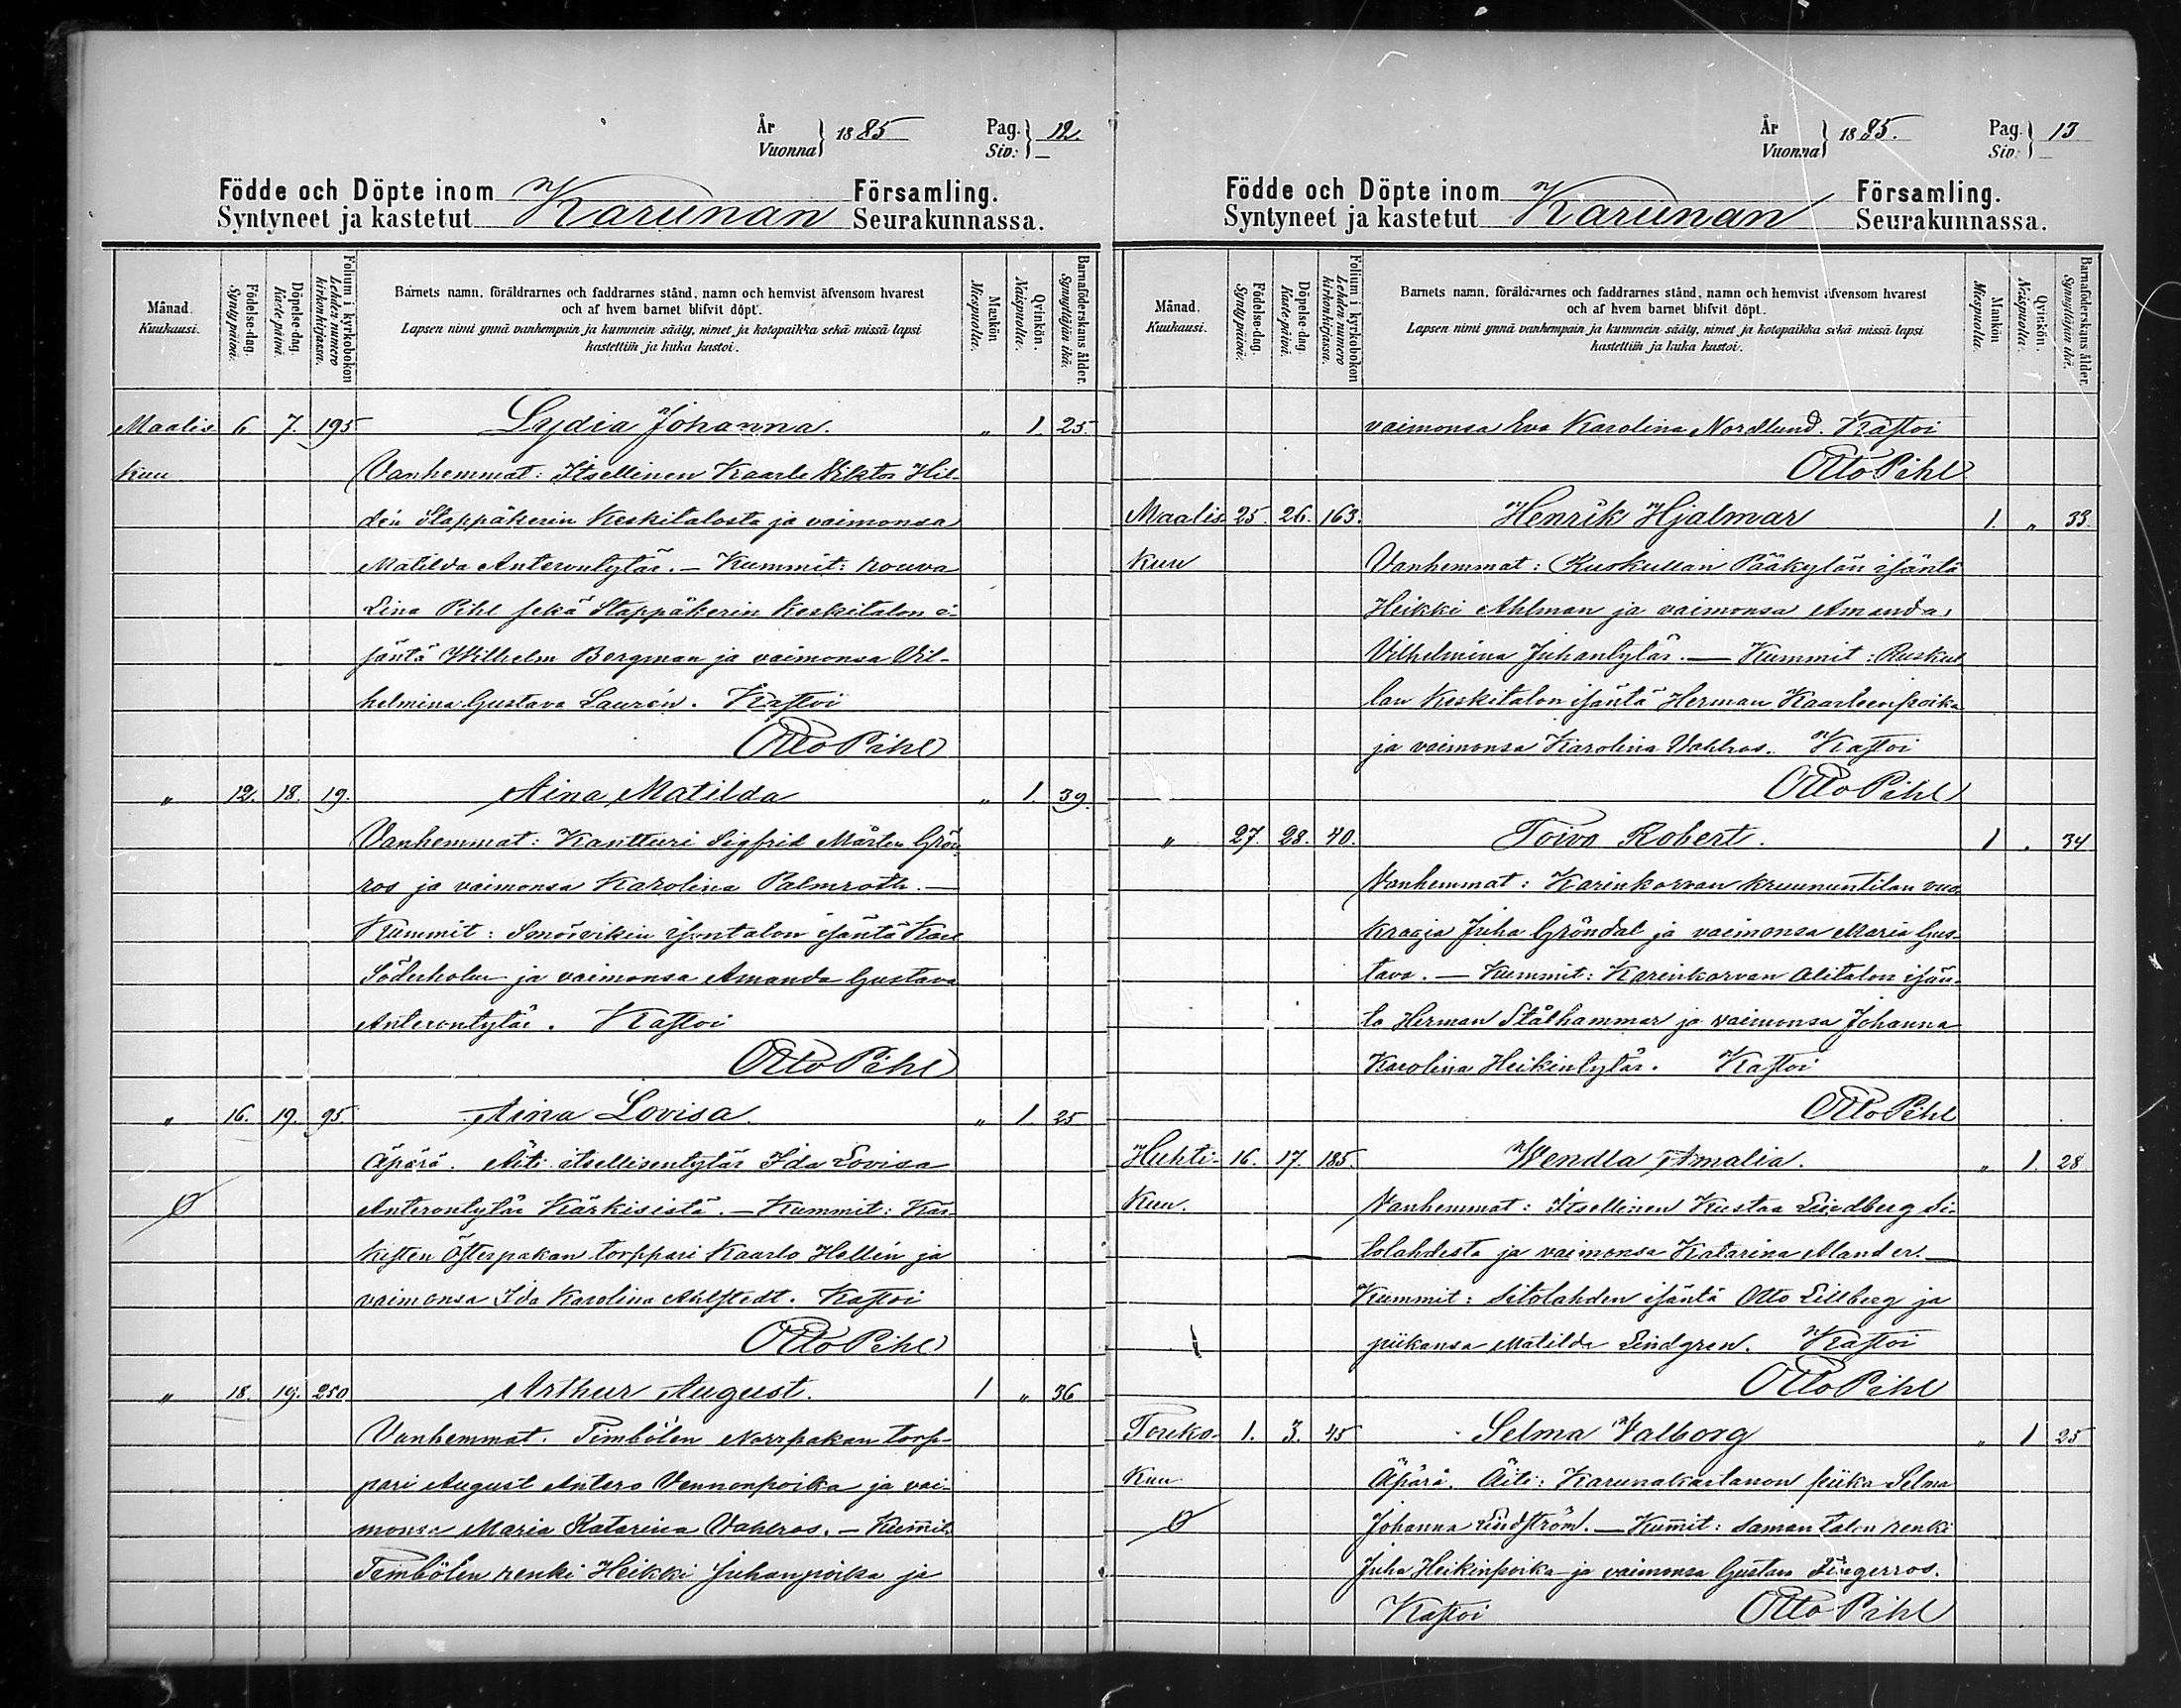 År
Vuonna } 1885 Pag.
Siv: } 12.
Födde och Döpte inom Karunan Församling.
Syntyneet ja kastetut Seurakunnassa.
Månad. Kuukausi.
Födelse-dag. Synty päivä.
Döpelse-dag. Kaste päivä.
Folium i kyrkobokon Lehden numero kirkonkirjassa.
Barnets namn, föräldrarnes och faddrarnes stånd, namn och hemvist äfvensom hvarest
och af hvem barnet blifvit döpt.
Lapsen nimi ynnä vanhempain ja kummein sääty, nimet ja kotopaikka sekä missä lapsi
kastettiin ja kuka kastoi.
Mankön Miespuolia.
Qvinkön. Naispuolia.
Barnaföderskans ålder. Synnyttäjän ikä.
Maalis 6. 7. 195 Lydia Johanna. „ 1. 25.
kuu Vanhemmat: Itsellinen Kaarle Viktor Hil-
dén Stappäkerin Keskitalosta ja vaimonsa
Matilda Anterontytär. — Kummit: rouva
Lina Pihl sekä Stappäkerin Keskitalon i-
säntä Wilhelm Bergman ja vaimonsa Vil-
helmina Gustava Laurén. Kastoi
Otto Pihl
„ 12. 18. 19. Aina Matilda „ 1. 39.
Vanhemmat: Kantturi Sigfrid Mårten Grön-
ros ja vaimonsa Karolina Palmroth. —
Kummit: Smörvikin isontalon isäntä Karl
Söderholm ja vaimonsa Amanda Gustava
Anterontytär. Kastoi
Otto Pihl
„ 16. 19. 95. Aina Lovisa. „ 1. 25
Äpärä. Äiti itsellisentytär Ida Lovisa
Anterontytär Kärkisistä. — Kummit: Kär-
kisten Österpakan torppari Kaarlo Hellén ja
vaimonsa Ida Karolina Ahlstedt. Kastoi
Otto Pihl
„ 18. 19. 250 Arthur August. 1 „ 36
Vanhemmat. Timbölen Norrpakan torp-
pari August Antero Vennonpoika ja vai-
monsa Maria Katarina Vahlros. — Kummit.
Timbölen renki Heikki Juhanpoika ja
År
Vuonna } 1885. Pag.
Siv: } 13
Födde och Döpte inom Karunan Församling.
Syntyneet ja kastetut Seurakunnassa.
Månad. Kuukausi.
Födelse-dag. Synty päivä.
Döpelse-dag. Kaste päivä.
Folium i kyrkobokon Lehden numero kirkonkirjassa.
Barnets namn, föräldrarnes och faddrarnes stånd, namn och hemvist äfvensom hvarest
och af hvem barnet blifvit döpt.
Lapsen nimi ynnä vanhempain ja kummein sääty, nimet ja kotopaikka sekä missä lapsi
kastettiin ja kuka kastoi.
Mankön Miespuolia.
Qvinkön. Naispuolia.
Barnaföderskans ålder. Synnyttäjän ikä.
vaimonsa Eva Karolina Nordlund. Kastoi
Otto Pihl.
Maalis 25. 26. 163. Henrik Hjalmar 1. „ 33.
kuu Vanhemmat: Ruskullan Pääkylän isäntä
Heikki Ahlman ja vaimonsa Amanda
Vilhelmina Juhantytär. — Kummit: Ruskul-
lan Keskitalon isäntä Herman Kaarleenpoika
ja vaimonsa Karolina Vahlros. Kastoi
Otto Pihl
„ 27. 28. 40. Toivo Robert. 1 „ 34
Vanhemmat: Karinkorvan kruununtilan vuo-
kraaja Juha Gröndal ja vaimonsa Maria Gus-
tava. — Kummit: Karinkorvan Alitalon isän-
tä Herman Stålhammar ja vaimonsa Johanna
Karolina Heikintytär. Kastoi
Otto Pihl
Huhti- 16. 17. 185. Wendla Amalia. „ 1. 28.
kuu. Vanhemmat: Itsellinen Kustaa Lindberg Si-
tolahdesta ja vaimonsa Katarina Mander. —
Kummit: Sitolahden isäntä Otto Lillberg ja
piikansa Matilda Lindgren. Kastoi
Otto Pihl
Touko 1. 3. 45 Selma Valborg „ 1 25
kuu Äpärä. Äiti: Karunakartanon piika Selma
Johanna Lindström. — Kummit: saman talon renki
Juha Heikinpoika ja vaimonsa Gustava Fingerros.
Kastoi Otto Pihl